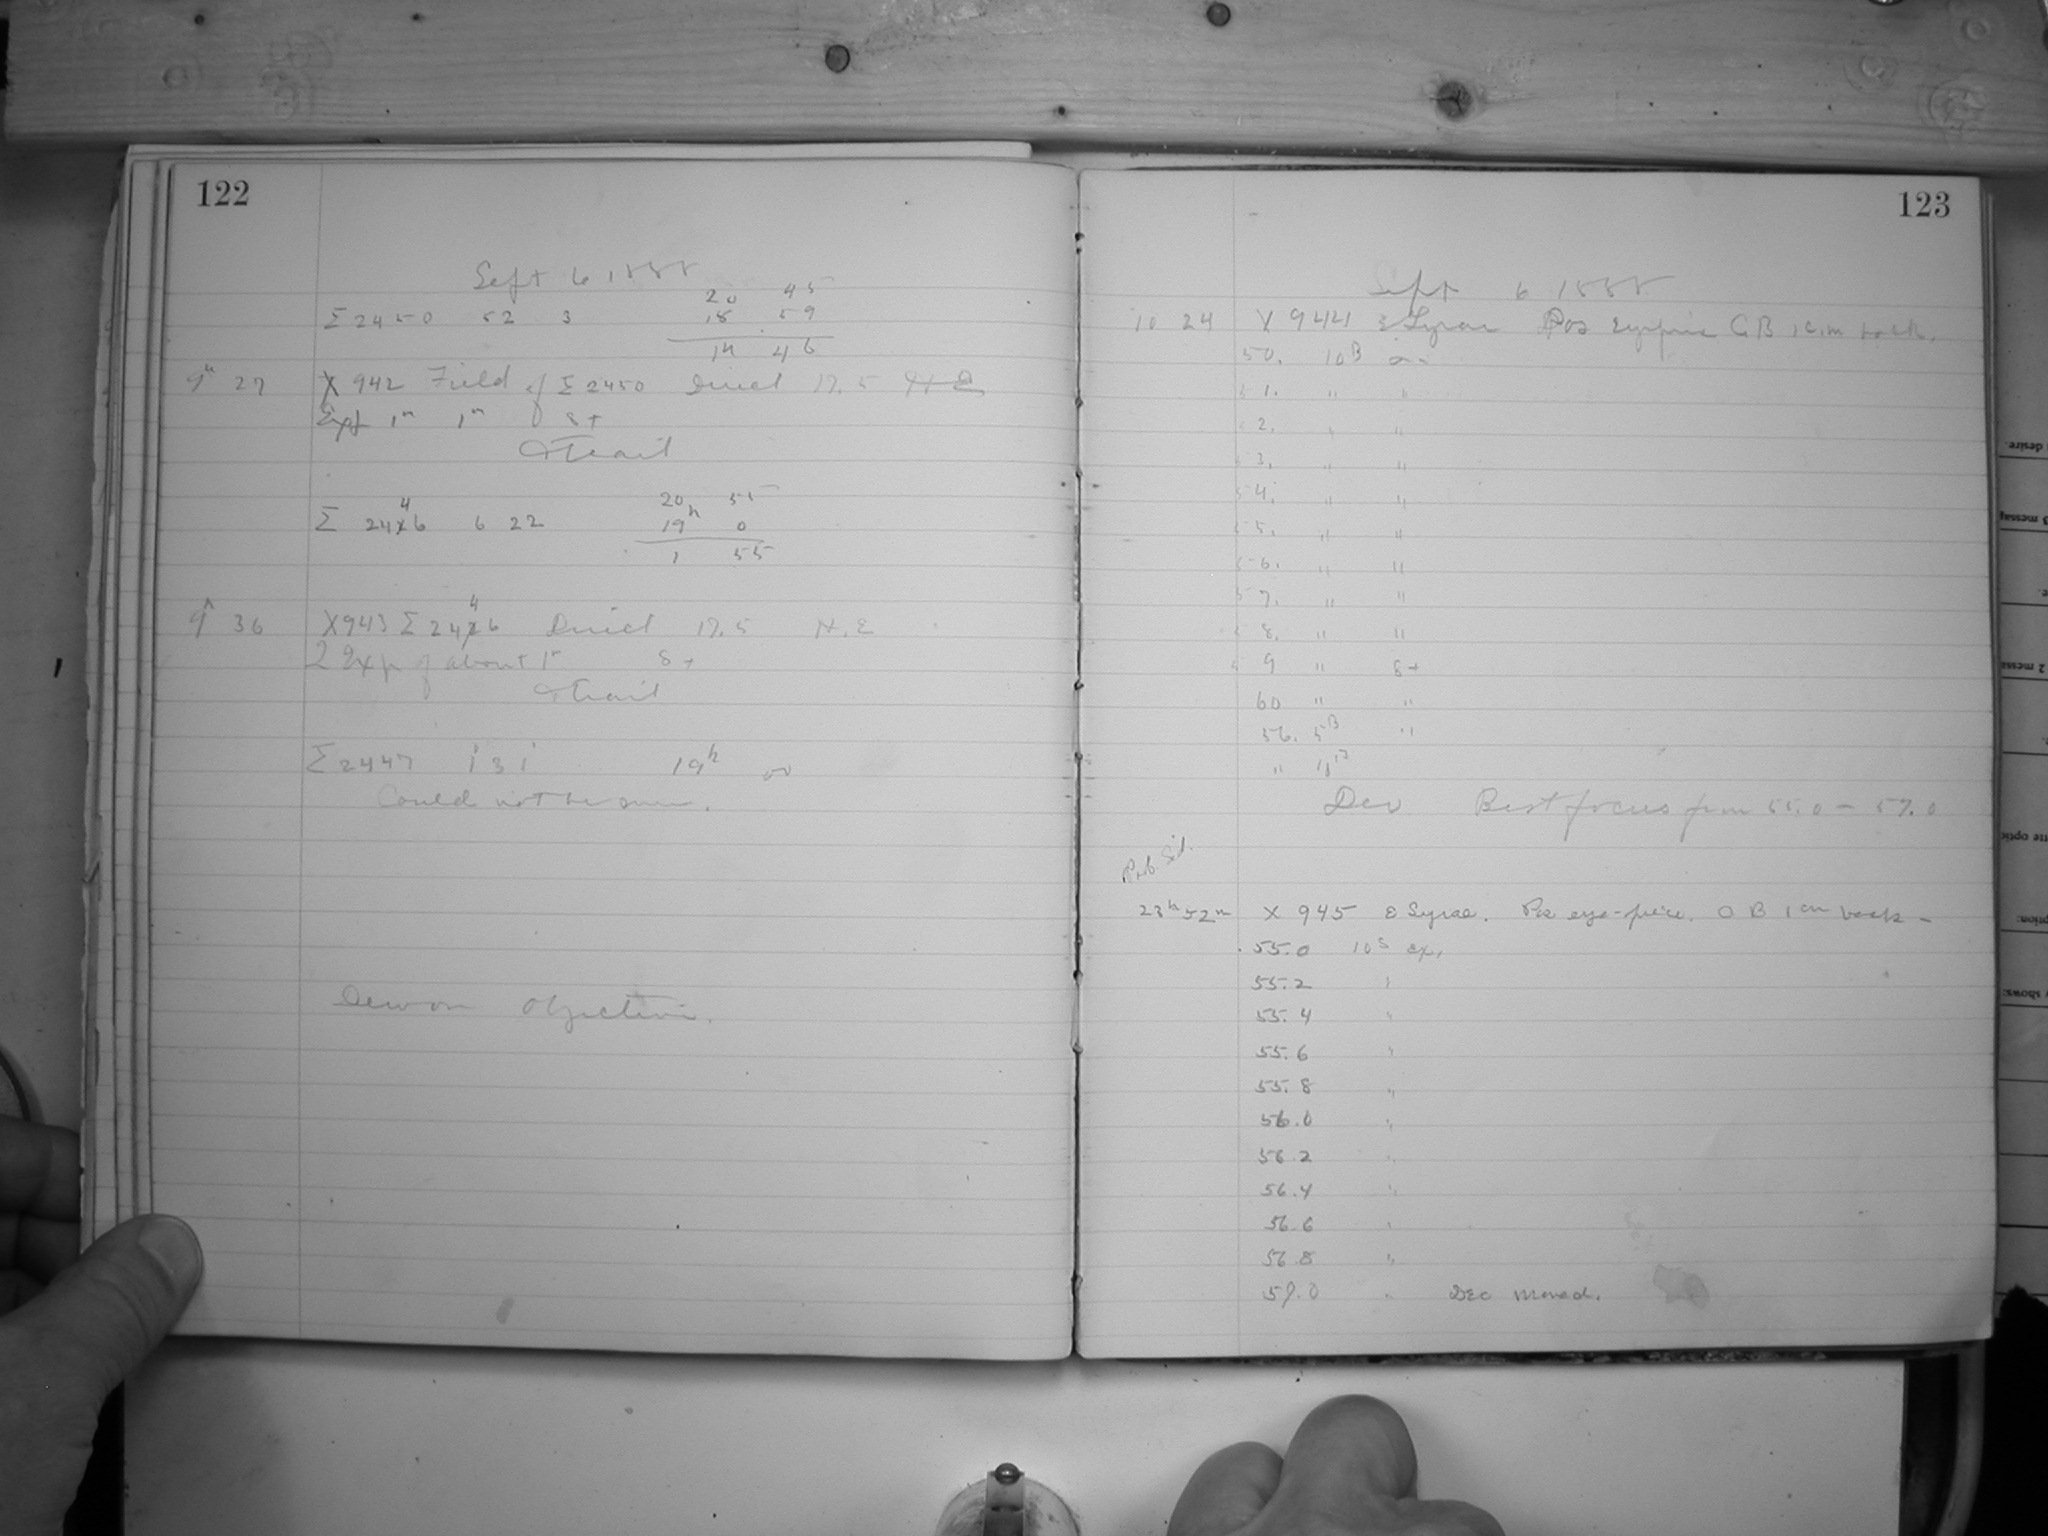 122
Sept 6 1888
20 45
Σ 2450 52 3 18 59
1h 46
9h 27 X 942 Field of Σ 2450 Direct 17.5
Exp 1m 1m 8+
& Trail
4
20 55
Σ 2426 6 22 19h 0
1 55
4
9h 36 X943 Σ 2426 Direct 17.5 N.E
2 Exp of about 1m 8+
& Trail
Σ 2447 19h
Could not be seen.
Dew on Objective.
123
Sept 6 1888
10 24 X 944 ε Lyrae Pos Eyepiece 1cm back.
50. 10
51. " "
52. " "
53. " "
54. " "
55. " "
56. " "
57. " "
58. " "
59 " 8+
60 " "
56. 5 "
"
Dev Best focus from 55.0 - 57.0
Prob. Sid.
23h 52m X 945 ε Lyrae. Pos eye-piece. O B 1 cm back -
55.0 10s ex.
55.2 "
55.4 "
55.6 "
55.8 "
56.0 "
56.2 "
56.4 "
56.6 "
56.8 "
57.0 " Dec moved.
desire.
3 messa
2 messa
tte optic
ption:
shows: